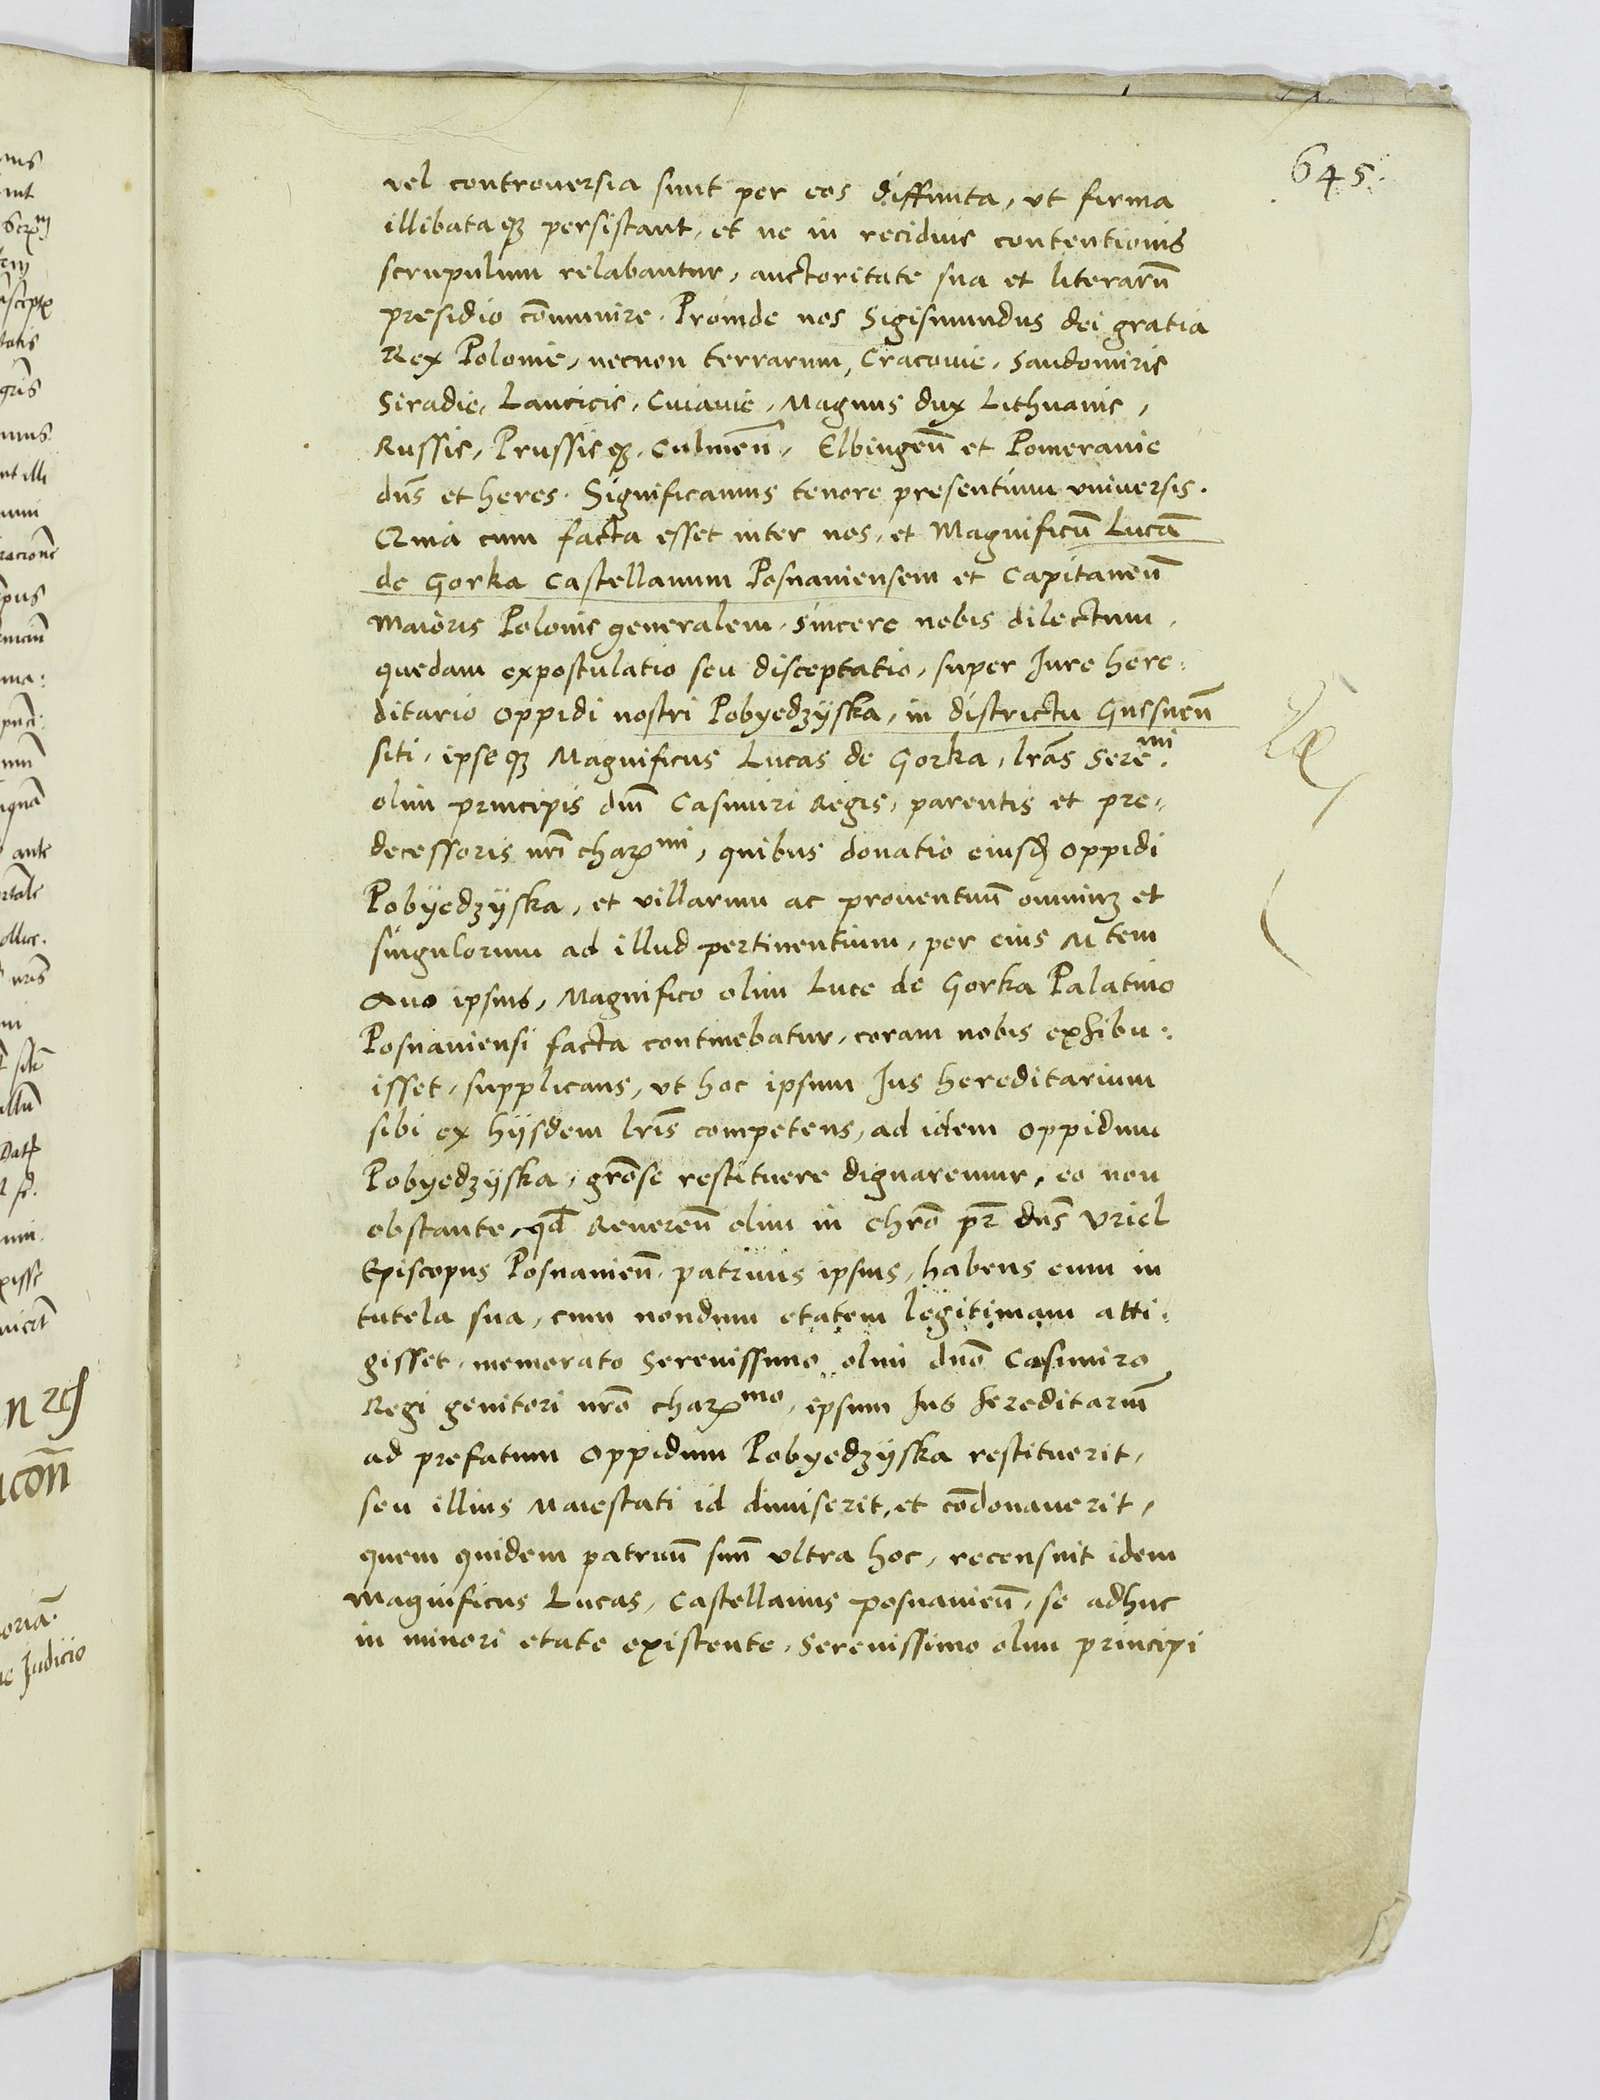 645.
vel controuersia sunt per eos diffinita, vt firma
illibataqȝ persistant, et ne in recidiue contentionis
scrupulum relabantur, auctoritate sua et literarū
presidio cōmunire. Proinde nos Sigismundus dei gratia
Rex Polonie, necnon terrarum, Cracouie, Sandomirie
Siradie, Lancicie, Cuiauie, Magnus dux Lithuanie,
Russie, Prussieqȝ, Culmen̄, Elbingen̄ et Pomeranie
dn̄s et heres. Significamus tenore presentium vniuersis.
Quia cum facta esset inter nos, et Magnificū Lucā
de Gorka Castellanum Posnaniensem et Capitaneū
Maioris Polonie generalem, sincere nobis dilectum,
quedam expostulatio seu disceptatio, super Iure here:
ditario oppidi nostri Pobyedzÿska, in districtu Gnesnen̄
siti, ipseqȝ Magnificus Lucas de Gorka, lrās Sere^mi.
olim principis dn̄i Casimiri Regis, parentis et pre:
decessoris nrī char^mi, quibus donatio eiusd oppidi
Pobÿedzÿska, et villarum ac prouentuū omniuȝ et
singulorum ad illud pertinentium, per eius M tem
Auo ipsius, Magnifico olim Luce de Gorka Palatino
Posnaniensi facta continebatur, coram nobis exhibu:
isset, supplicans, vt hoc ipsum Ius hereditarium
sibi ex hÿsdem lrīs competens, ad idem oppidum
Pobyedzÿska, grōse restituere dignaremur, eo non
obstante, qd̄ Reueren̄ olim in chrō pr̄ dn̄s Vriel
Episcopus Posnanien̄ patruus ipsius, habens eum in
tutela sua, cum nondum etatem legitimam atti:
gisset, memorato Serenissimo olim dnō Casimiro
Regi genitori nrō char^mo, ipsum Ius hereditariū
ad prefatum oppidum Pobyedzÿska restituerit,
seu illius Maiestati id dimiserit, et cōdonauerit,
quem quidem patruū suū vltra hoc, recensuit idem
Magnificus Lucas, Castellanus posnanien̄, se adhuc
in minori etate existente, Serenissimo olim principi